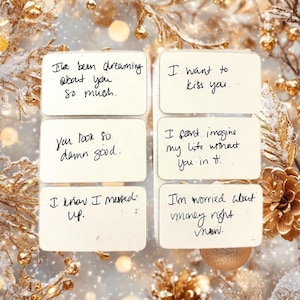 I've been dreaming
about you
so much.
I want to
kiss you.
You look so
damn good.
I can't imagine
my life without
you in it.
I know I messed
up.
I'm worried about
money right
now.